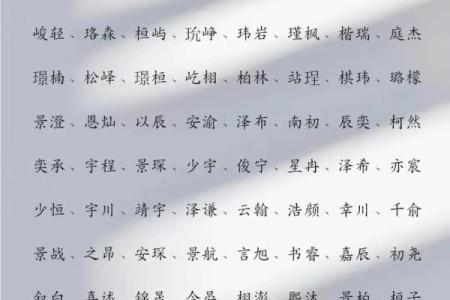 峻轻、珞森、桓屿、玧峥、玮岩、瑾枫、楷瑞、庭杰
璟楠、松峄、璟桓、屹栩、柏林、站珵、棋玮、璐檬
景澄、恩灿、以辰、安渝、泽布、南初、辰奕、柯然
奕承、宇程、景琛、少宇、俊宁、星冉、泽希、亦宸
少恒、宇川、靖宇、泽谦、云翰、浩颜、幸川、千俞
景战、之昂、安琛、景航、言旭、书睿、嘉辰、初尧